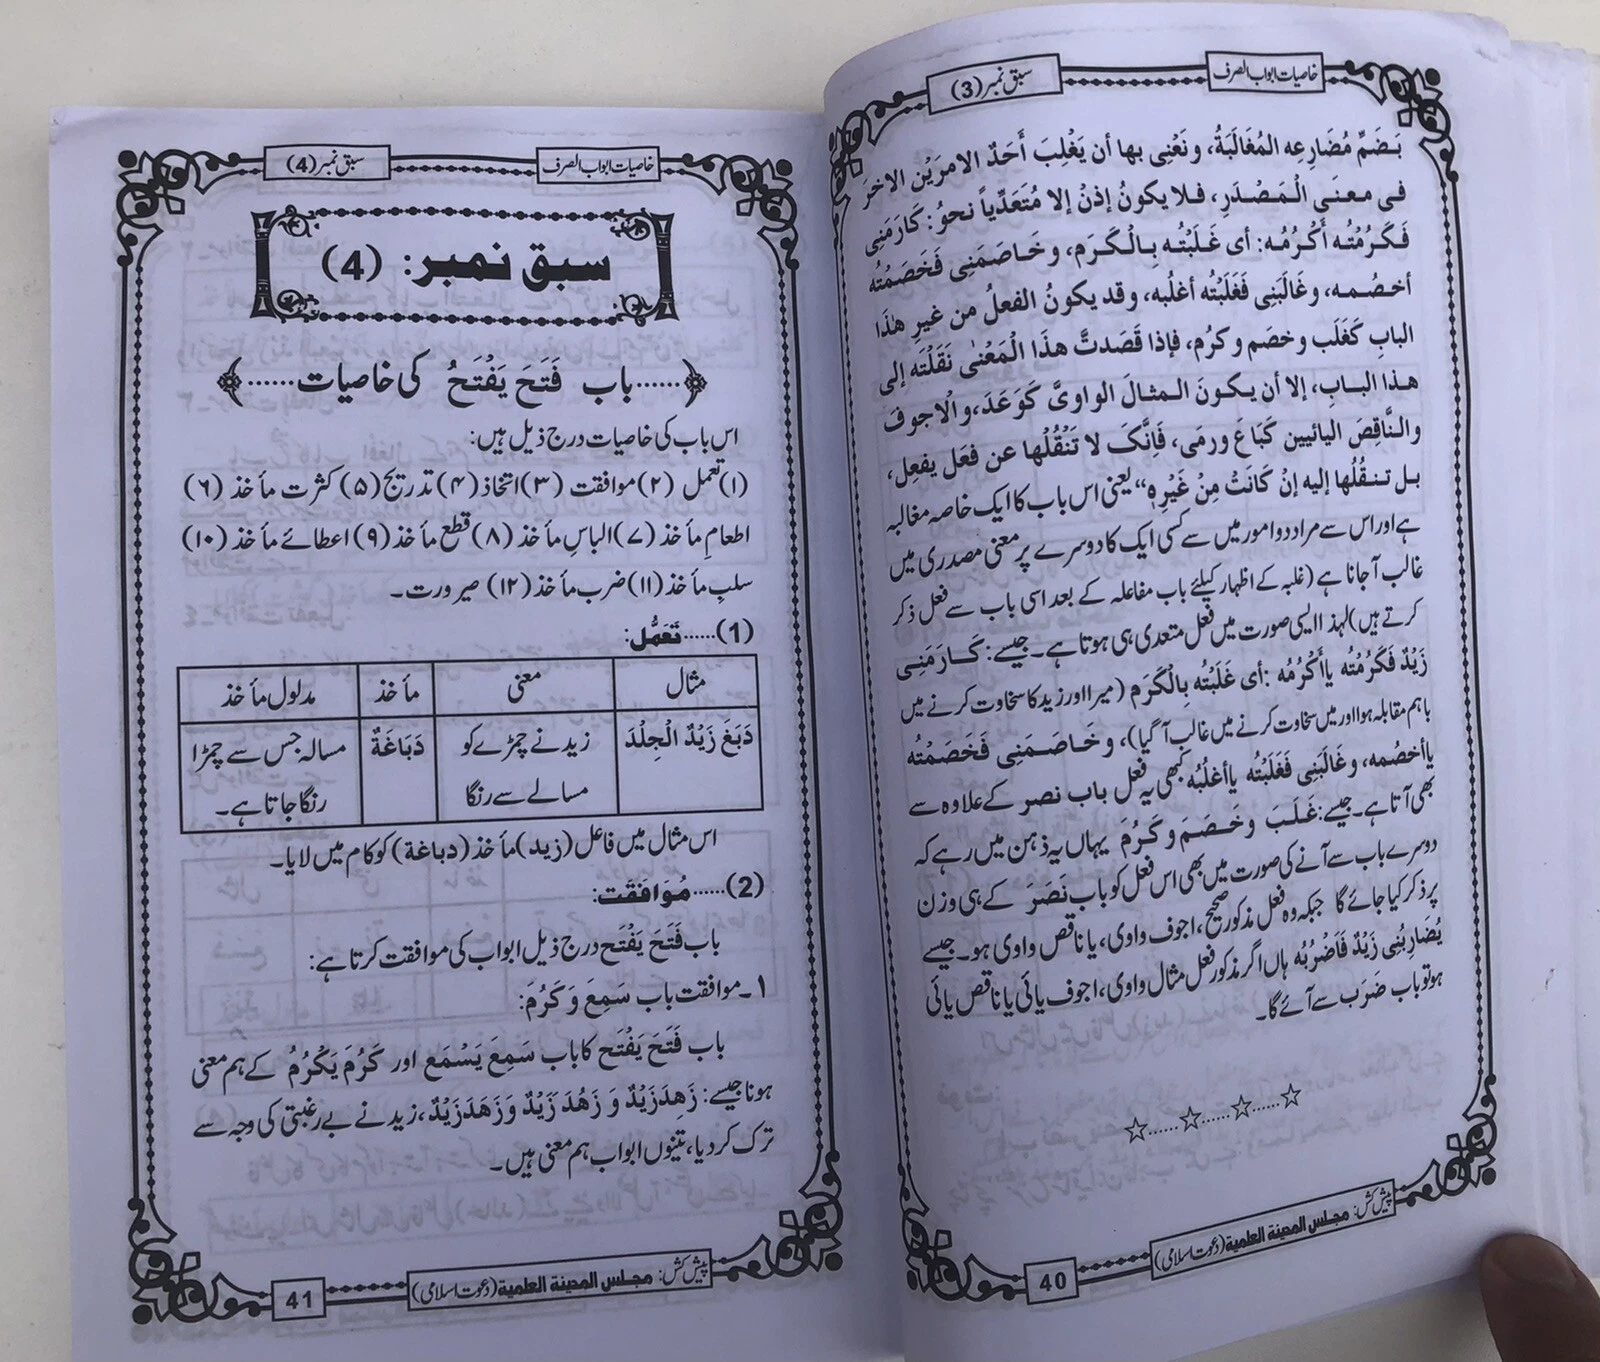 خاصیات ابواب الصرف
سبق نمبر (3)
بَضَمِّ مُضَارِعِه المُغَالَبَةُ، ونَعْنِى بها أن يَغْلِبَ أَحَدُ الامرَيْنِ الاخرَ
فى معنَى الْمَصْدَرِ، فلا يكونُ إذنْ إلا مُتَعَدِّياً نحوُ: كَارَمَنِى
فَكَرُمْتُه أَكْرُمُه: أى غَلَبْتُه بِالْكَرَمِ، وخَاصَمَنِى فَخَصَمْتُه
أخصُمه، وغَالَبَنِى فَغَلَبْتُه أغلُبه، وقد يكونُ الفعلُ من غيرِ هٰذَا
البابِ كَغَلَب وخصَم وكرُم، فإذا قَصَدتَّ هذَا الْمَعْنٰى نَقَلْتَه إلى
هذا البابِ، إلا أن يكونَ المثالَ الواوىَّ كَوَعَدَ، والْاجوفَ
والنَّاقِصَ اليائيين كَبَاعَ ورمَى، فَإِنَّكَ لا تَنْقُلُها عن فعَل يفعِل،
بل تنقُلُها إليه إنْ كَانَتْ مِنْ غَيْرِهٖ“ یعنی اس باب کا ایک خاصہ مغالبہ
ہے اور اس سے مراد دو امور میں سے کسی ایک کا دوسرے پر معنی مصدری میں
غالب آجانا ہے (غلبہ کے اظہار کیلئے باب مفاعلہ کے بعد اسی باب سے فعل ذکر
کرتے ہیں) لہذا ایسی صورت میں فعل متعدی ہی ہوتا ہے۔ جیسے: كَارَمَنِى
زَيْدٌ فَكَرُمْتُه یا أَكْرُمُه :أى غَلَبْتُه بِالْكَرَمِ (میرا اور زید کا سخاوت کرنے میں
باہم مقابلہ ہوا اور میں سخاوت کرنے میں غالب آ گیا)، وخَاصَمَنِى فَخَصَمْتُه
یا أخصُمه، وغَالَبَنِى فَغَلَبْتُه یا أغلُبُه کبھی یہ فعل باب نصر کے علاوہ سے
بھی آتا ہے۔ جیسے: غَلَبَ وخَصَمَ وكَرُمَ یہاں یہ ذہن میں رہے کہ
دوسرے باب سے آنے کی صورت میں بھی اس فعل کو باب نَصَرَ کے ہی وزن
پر ذکر کیا جائے گا جبکہ وہ فعل مذکور صحیح، اجوف واوی، یا ناقص واوی ہو۔ جیسے
يُضَارِبُنِى زَيْدٌ فَاَضْرُبُه ہاں اگر مذکور فعل مثال واوی، اجوف یائی یا ناقص یائی
ہو تو باب ضَرَب سے آئے گا۔
☆......☆......☆......☆
پیش کش: مجلس المدینۃ العلمیۃ (دعوت اسلامی)
40
خاصیات ابواب الصرف
سبق نمبر (4)
سبق نمبر: (4)
......باب فَتَحَ يَفْتَحُ کی خاصیات......
اس باب کی خاصیات درج ذیل ہیں:
(۱) تعمل (۲) موافقت (۳) اتخاذ (۴) تدریج (۵) کثرت مأخذ (۶)
اطعامِ مأخذ (۷) الباسِ مأخذ (۸) قطع مأخذ (۹) اعطائے مأخذ (۱۰)
سلبِ مأخذ (۱۱) ضرب مأخذ (۱۲) صیرورت۔
(1)......تَعَمُّل:
مثال معنی مأخذ مدلول مأخذ
دَبَغَ زَيْدٌ الْجِلْدَ زید نے چمڑے کو دَبَاغَةٌ مسالہ جس سے چمڑا
مسالے سے رنگا رنگا جاتا ہے۔
اس مثال میں فاعل (زید) مأخذ (دباغة) کو کام میں لایا۔
(2)......مُوَافَقَت:
باب فَتَحَ يَفْتَح درج ذیل ابواب کی موافقت کرتا ہے:
۱۔ موافقت باب سَمِعَ وَ كَرُمَ:
باب فَتَحَ يَفْتَح کا باب سَمِعَ يَسْمَع اور كَرُمَ يَكْرُمُ کے ہم معنی
ہونا جیسے: زَهِدَ زَيْدٌ وَ زَهُدَ زَيْدٌ وَ زَهَدَ زَيْدٌ، زید نے بے رغبتی کی وجہ سے
ترک کر دیا، تینوں ابواب ہم معنی ہیں۔
پیش کش: مجلس المدینۃ العلمیۃ (دعوت اسلامی)
41